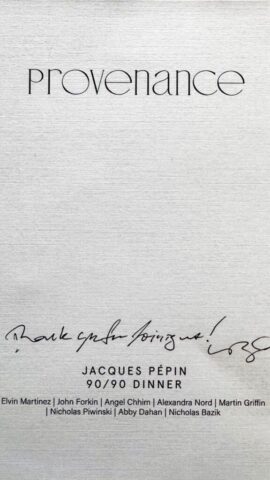 Provenance
Thank you for joining us!
JACQUES PÉPIN
90/90 DINNER
Elvin Martinez | John Forkin | Angel Chhim | Alexandra Nord | Martin Griffin
| Nicholas Piwinski | Abby Dahan | Nicholas Bazik